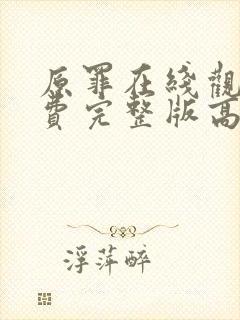 原罪在綫觀
費完整版高
浮萍醉